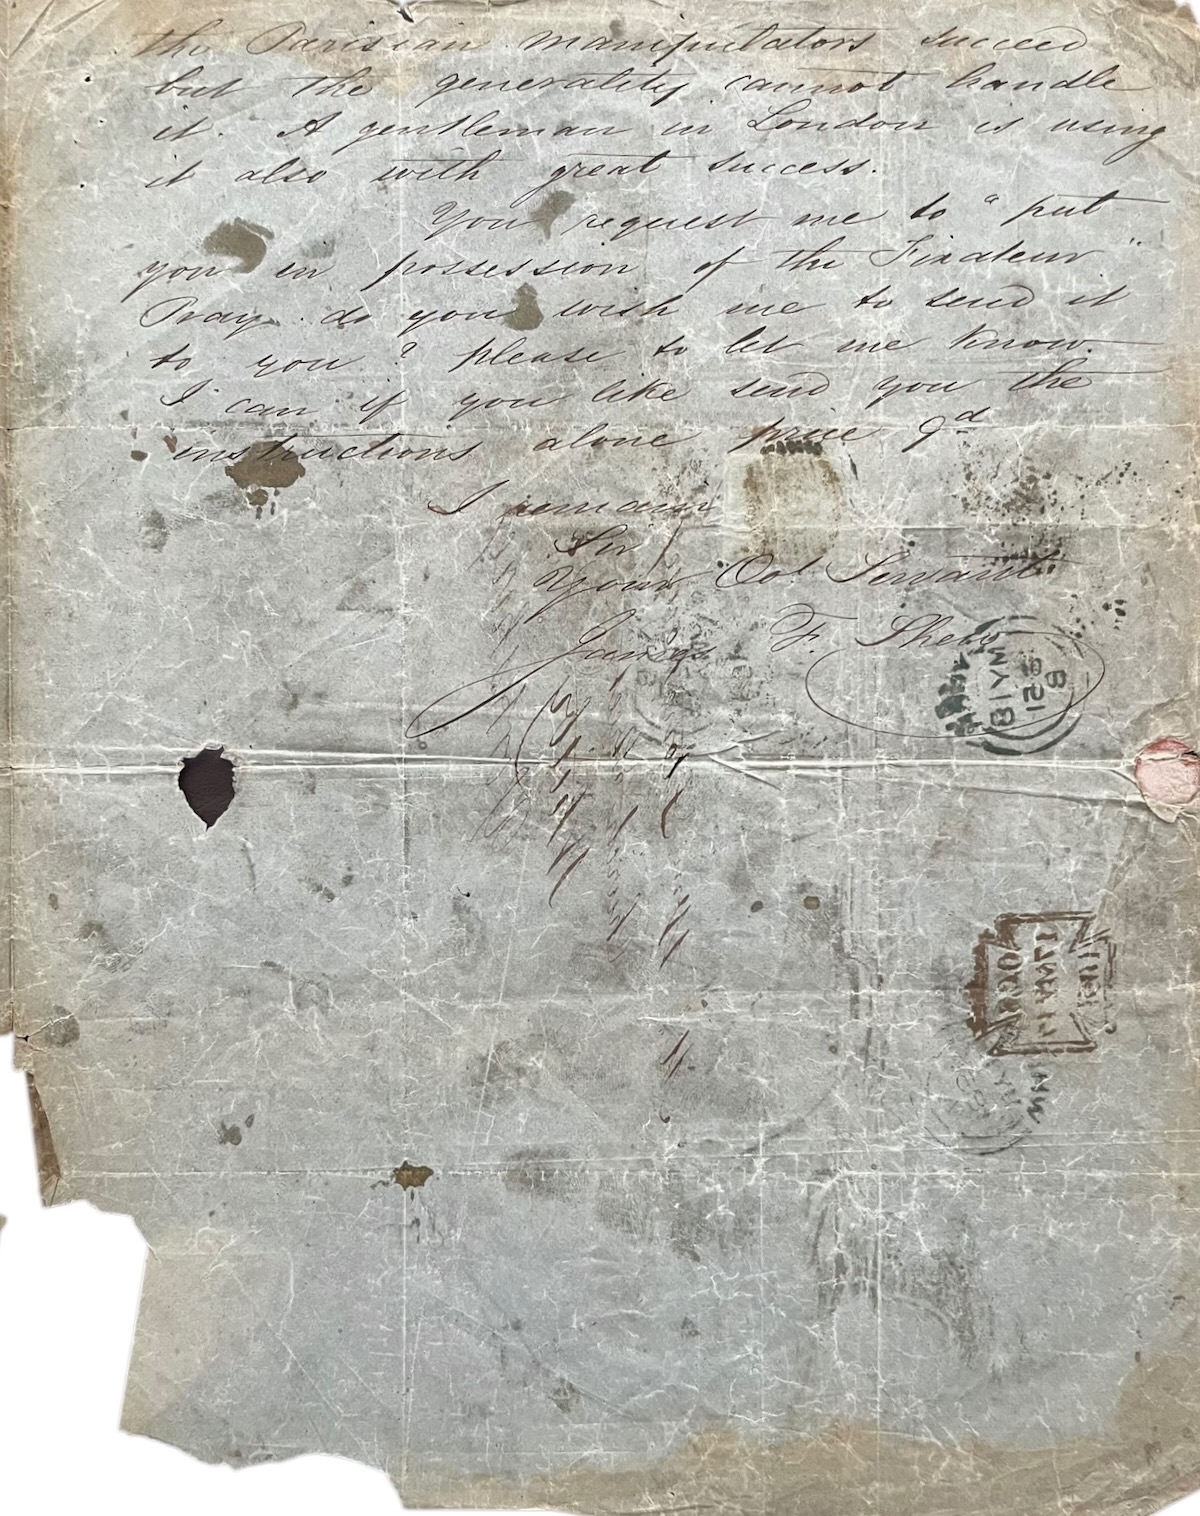 the Parisian manipulators succeed
but the generality cannot handle
it. A gentleman in London is using
it also with great success.
You request me to "put
you in possession of the Fixateur"
Pray do you wish me to send it
to you? please to let me know.
I can if you like send you the
instructions alone price 9d
I remain
Sir
Your Obt Servant
James F. Shew
MY 18